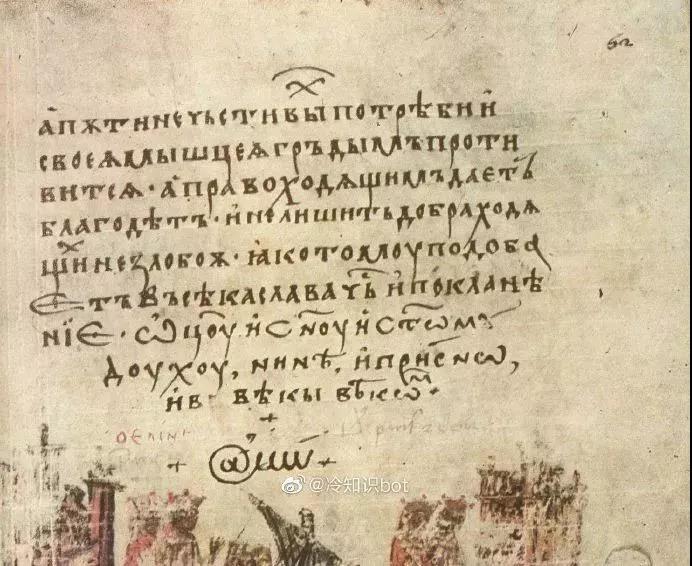 а пѫти нечьстивыⷯ потрѣби и
своеѫ мышцеѫ гръдымъ проти
витсѧ · а правоходѧщимъ даетъ
благодѣтъ · и не лишитъ добра ходѧ
щиⷯ незлобоѫ · ꙗко томоу подоба
етъ въсѣка слава чⷭ҇ть и покланѣ
нїе · ѡц҃оу и сн҃оу и ст҃омꙋ
доухоу, нинѣ, и приⷭ҇нѡ,
и въ вѣкы вѣкѡⷨ ·
@ми҃н
@冷知识bot